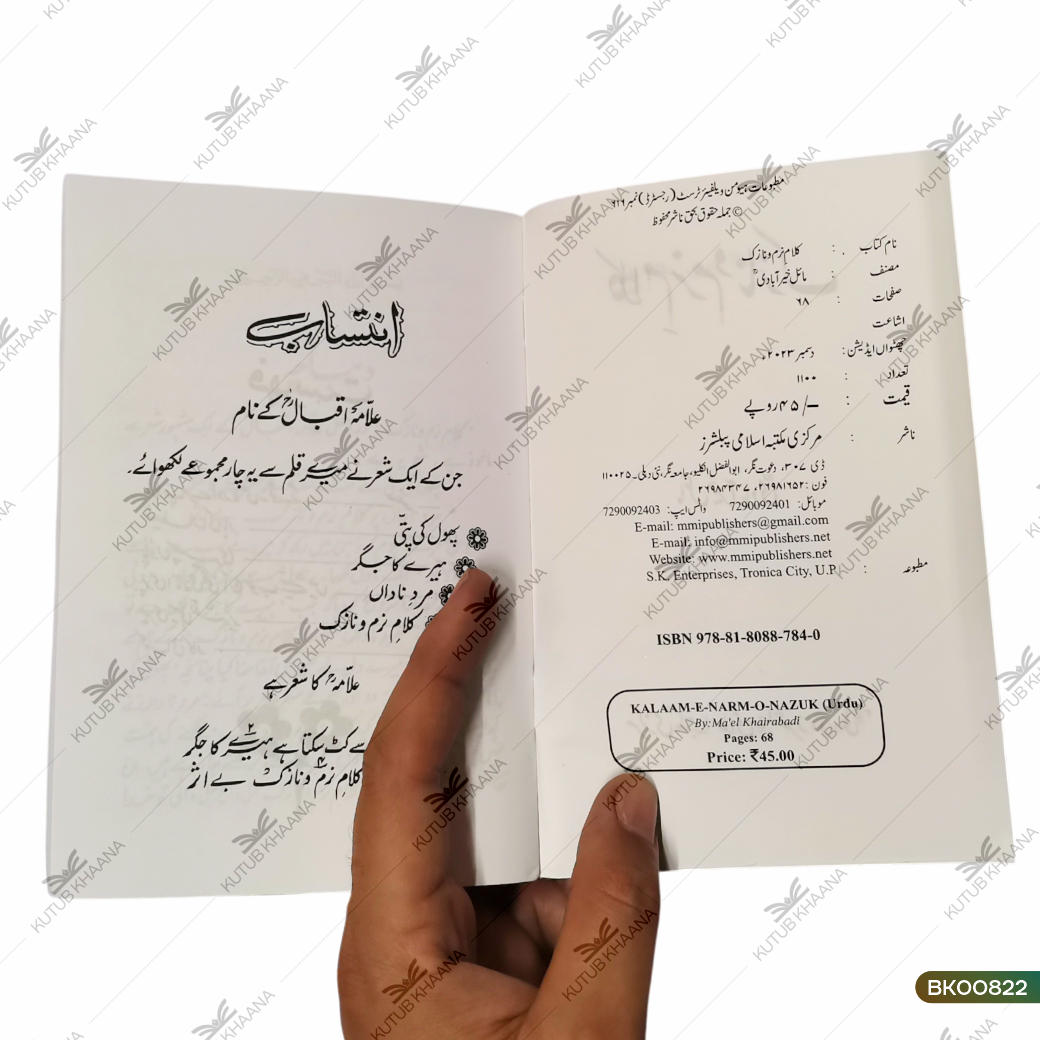 مطبوعات ہیومن ویلفیئر ٹرسٹ (رجسٹرڈ) نمبر ۶۱۶
© جملہ حقوق بحق ناشر محفوظ
نام کتاب : کلام نرم و نازک
مصنف : مائل خیرآبادیؒ
صفحات : ۶۸
اشاعت
چھٹواں ایڈیشن : دسمبر ۲۰۲۳ء
تعداد : ۱۱۰۰
قیمت : ۴۵/– روپے
ناشر : مرکزی مکتبہ اسلامی پبلشرز
ڈی ۳۰۷، دعوت نگر، ابوالفضل انکلیو، جامعہ نگر، نئی دہلی۔ ۱۱۰۰۲۵
فون: ۲۶۹۸۱۶۵۲، ۲۶۹۸۴۳۴۷
موبائل: 7290092401 واٹس ایپ: 7290092403
E-mail: mmipublishers@gmail.com
E-mail: info@mmipublishers.net
Website: www.mmipublishers.net
مطبوعہ : S.K. Enterprises, Tronica City, U.P.
ISBN 978-81-8088-784-0
KALAAM-E-NARM-O-NAZUK (Urdu)
By:Ma'el Khairabadi
Pages: 68
Price: ₹45.00
انتساب
علّامہ اقبالؒ کے نام
جن کے ایک شعر نے میرے قلم سے یہ چار مجموعے لکھوائے۔
پھول کی پتّی
ہیرے کا جگر
مردِ ناداں
کلامِ نرم و نازک
علّامہؒ کا شعر ہے
سے کٹ سکتا ہے ہیرے۲ کا جگر
کلامِ نرم۴ و نازک بے اثر
KUTUB KHAANA
BK00822